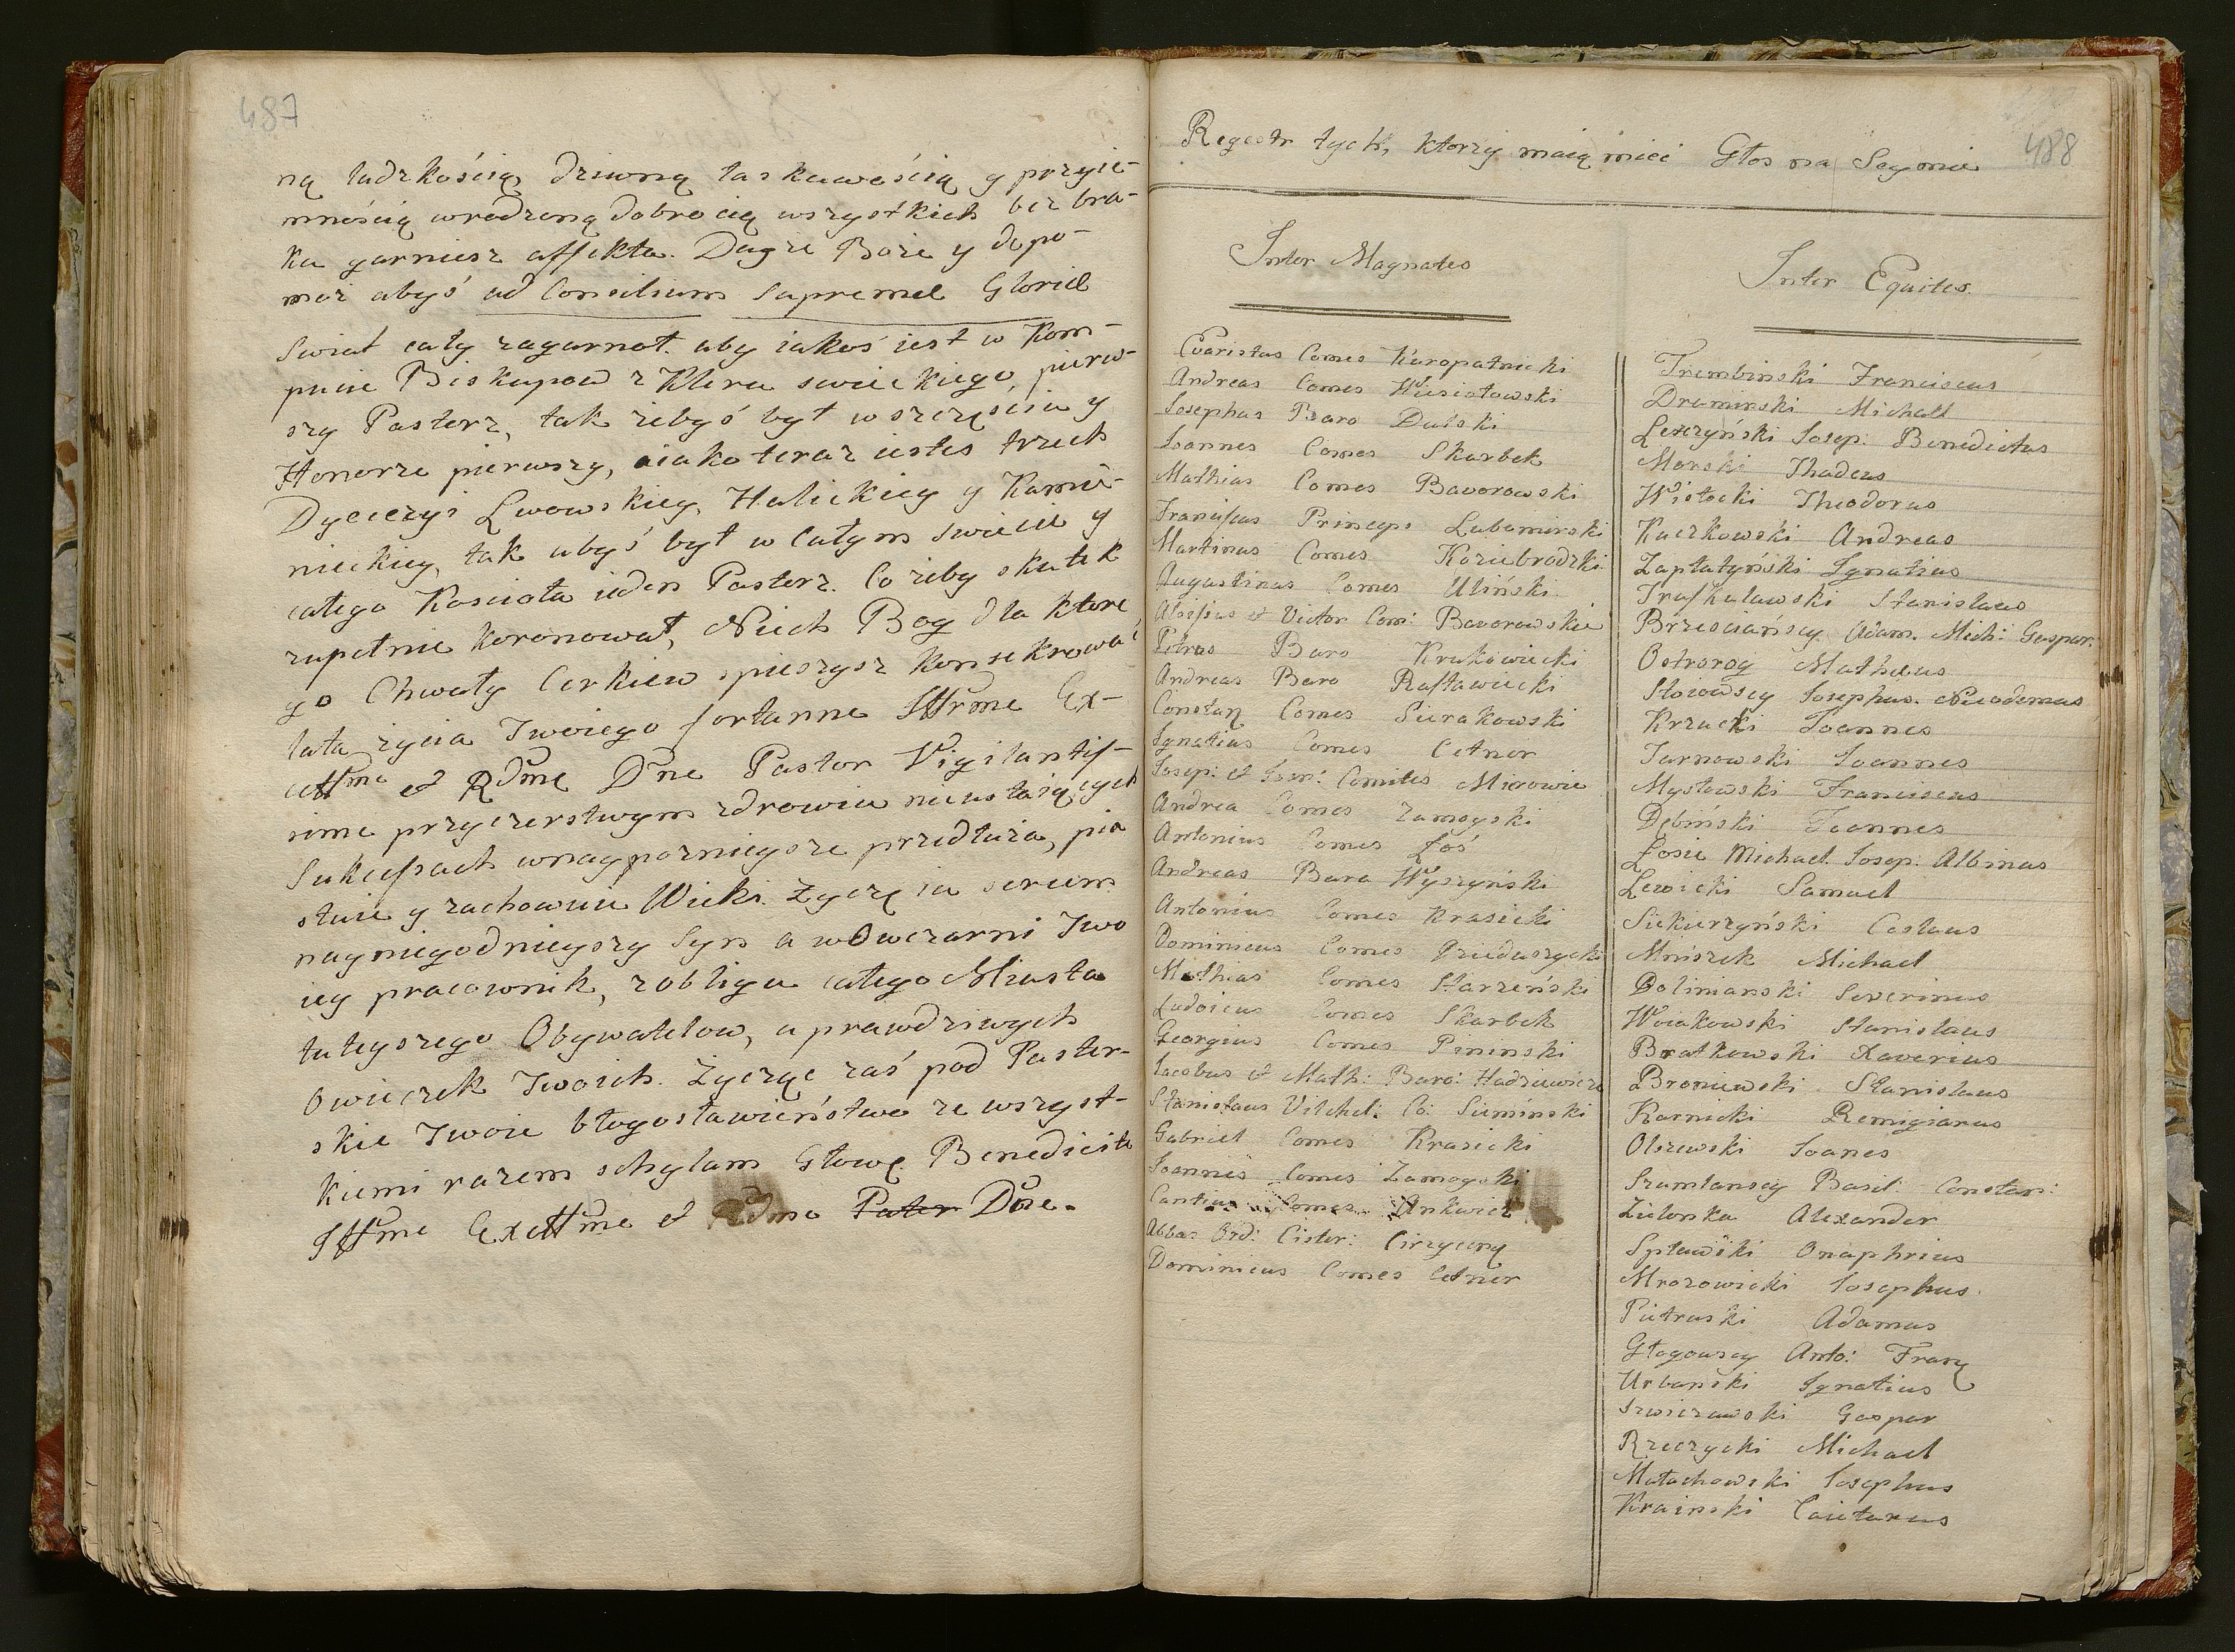 487
ną ludzkością, dziwną łaskawością y przyie-
mnością wrodzoną dobrocią wszystkich bez bra-
ku garniesz affekta. Dayże Boże y dopo-
moż abyś ad Consilium Supremae Gloriae
Swiat cały zagarnoł. aby iakoś iest w Kom-
pucie Biskupow z Kleru swieckiego, pierw-
szy Pasterz, tak żebyś był w szczęściu y
Honorze pierwszy, aiako teraz iesteś trzech
Dyecezyi Lwowskiey, Halickiey y Kamie-
nieckiey, tak abyś był w całym swiecie y
całego Kościoła ieden Pasterz. Co żeby skutek
zupełnie koronował, Niech Bog dla które
go Chwały Cerkiew spieszysz konsekrować
lata życia Twoiego fortunne Illrme Ex-
cellme et Rdme Dne Pastor Vigilantis-
sime przyczerstwym zdrowiu nieustaiących
Sukcessach wnaypozniejsze przedłuża, pia
stuie y zachowuie Wieki. Życzę ia serum
nayniegodnieyszy Syn a w Owczarni Two
iey pracownik, z obligu całego Miasta
tuteyszego Obywatelow, a prawdziwych
Owieczek Twoich. Życząc zaś pod Paster-
skie Twoie błogosławieństwo ze wszyst-
kiemi razem schylam Głowę. Benedicite
Illme Excellme et Rdme Pater Dne.
488
Regestr tych, ktorzy maią mieć Głos na Seymie
Inter Magnates
Evaristus Comes Kuropatnicki
Andreas Comes Wesiołowski
Josephus Baro Dulski
Joannes Comes Skarbek
Mathias Comes Bavorowski
Franciscus Princeps Lubomirski
Martinus Comes Koziebrodzki
Augustinus Comes Uliński
Aloisius et Victor Com: Bavorowskie
Petrus Baro Krukowiecki
Andreas Baro Rastawiecki
Constan Comes Sierakowski
Ignatius Comes Cetner
Josep: et Joan: Comites Mierowie
Andrea Comes Zamoyski
Antonius Comes Łoś
Andreas Baro Wyszyński
Antonius Comes Krasicki
Dominicus Comes Dzieduszycki
Mathias Comes Starzeński
Ludoicus Comes Skarbek
Georgius Comes Pininski
Jacobus et Math: Baro: Hadziewicze
Stanislaus Vilehel: Co: Siemiński
Gabriel Comes Krasicki
Joannes Comes Zamoyski
Cantius Comes Ankwicz
Abbas Ord: Cister:
Dominicus Comes Cetner
Inter Equites.
Trembinski Franciscus
Dreminski Michael
Leszczyński Josep: Benedictus
Morski Thadeus
Wisłocki Theodorus
Kuczkowski Andreas
Zapłatyński Ignatius
Truskulawski Stanislaus
Brzesciańscy Adam. Mich: Gaspar.
Ostrorog Matheus
Stoiowscy Josephus. Nicodemus
Krzucki Joannes
Tarnowski Joannes
Mysłowski Franciscus
Dębiński Joannes
Łosie Michael. Josep: Albinus
Lewicki Samuel
Siekierzyński Ceslaus
Mniszek Michael
Dolinianski Severinus
Woiakowski Stanislaus
Bratkowski Xaverius
Broniewski Stanislaus
Karnicki Remigianus
Olszewski Joanes
Szumlanscy Basil: Constan:
Zielonka Alexander
Spławski Onuphrius
Mrozowicki Josephus
Pietruski Adamus
Głogowscy Anto: Fran
Urbanski Ignatius
Szwiczewski Gaspar
Rzeczycki Michael
Małachowski Josephus
Krainski Caietanus